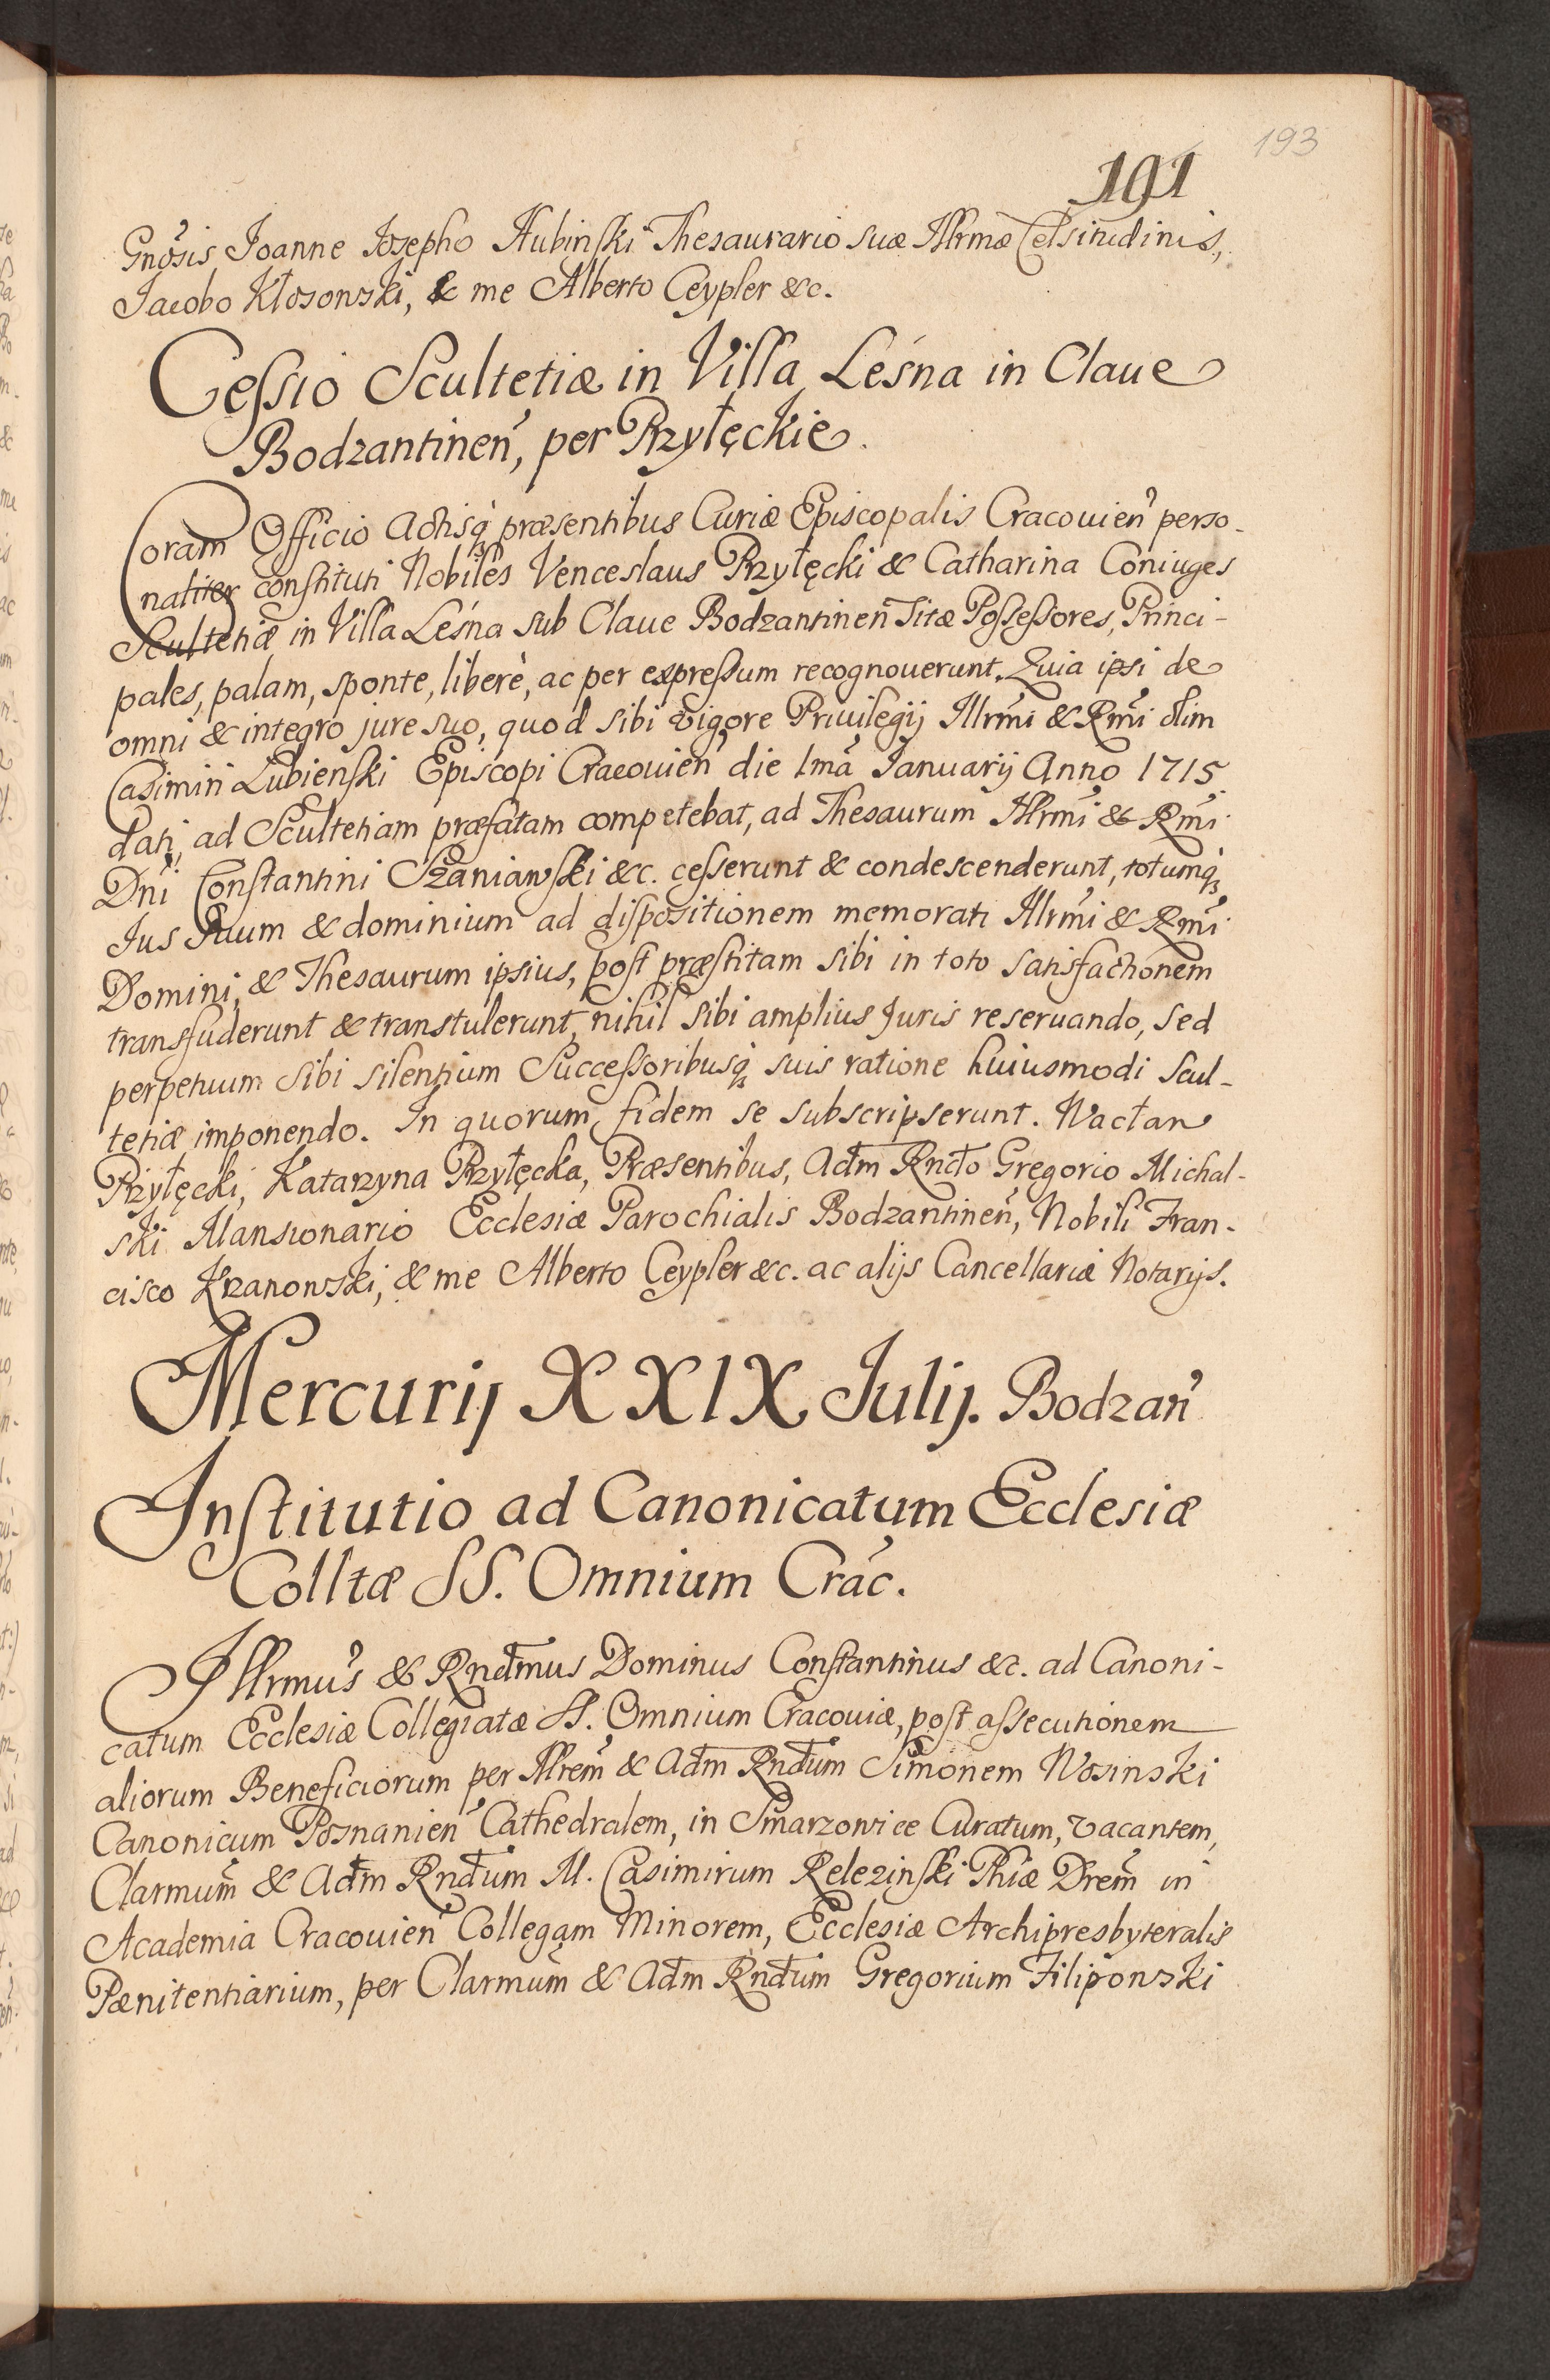 193
191
Gnosis Joanne Josepho Hubinski Thesaurario suæ Illrmæ Celsitudinis,
Jacobo Kłosowski, & me Alberto Ceypler &c.
Cessio Scultetiæ in Villa Leśna in Claue
Bodzantinen, per Przyłęckie.
Coram Officio Actisq præsentibus Curiæ Episcopalis Cracouien perso-
naliter constituti Nobiles Venceslaus Przyłęcki & Catharina Coniuges
Scultetiæ in Villa Leśna sub Claue Bodzantinen sitæ Possessores, Princi-
pales, palam, sponte, liberè, ac per expressum recognouerunt. Quia ipsi de
omni & integro jure suo, quod sibi vigore Priuilegij Illrmi & Rmi olim
Casimiri Łubienski Episcopi Cracouien die 1mâ Januarij Anno 1715
dati, ad Scultetiam præfatam competebat, ad Thesaurum Illrmi & Rmi
Dni Constantini Szaniawski &c. cesserunt & condescenderunt, totumq
Jus suum & dominium ad dispositionem memorati Illrmi & Rmi
Domini, & Thesaurum ipsius, post præstitam sibi in toto satisfactionem
transfuderunt & transtulerunt, nihil sibi amplius Juris reseruando, sed
perpetuum sibi silentium Successoribusq suis ratione huiusmodi Scul-
tetiæ imponendo. In quorum fidem se subscripserunt. Wacław
Przyłęcki, Katarzyna Przyłęcka, Præsentibus, Adm Rndo Gregorio Michal-
ski Mansionario Ecclesiæ Parochialis Bodzantinen, Nobili Fran-
cisco Krzanowski, & me Alberto Ceypler &c. ac alijs Cancellariæ Notarijs.
Mercurij XXIX Julij. Bodzan
Institutio ad Canonicatum Ecclesiæ
Colltæ SS. Omnium Crac.
Illrmus & Rndmus Dominus Constantinus &c. ad Canoni-
catum Ecclesiæ Collegiatæ SS. Omnium Cracouiæ, post assecutionem
aliorum Beneficiorum per Illrem & Adm Rndum Simonem Wosinski
Canonicum Posnanien Cathedralem, in Smarzowice Curatum, vacantem,
Clarmum & Adm Rndum M. Casimirum Relezinski Phiæ Drem in
Academia Cracouien Collegam Minorem, Ecclesiæ Archipresbyteralis
Pænitentiarium, per Clarmum & Adm Rndum Gregorium Filipowski